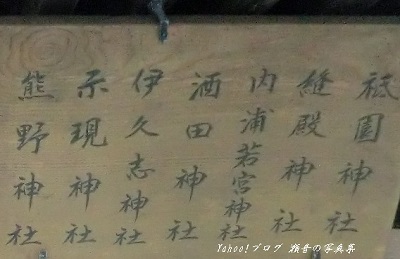 祗園神社
縫殿神社
内浦若宮神社
酒田神社
伊久志神社
示現神社
熊野神社
Yahoo!ブログ 瀬音の写真集